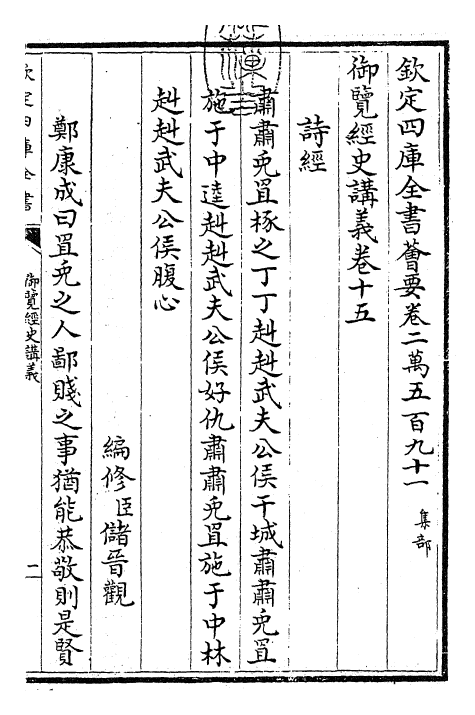 欽定四庫全書薈要卷二萬五百九十一 集部
御覽經史講義卷十五
詩經
肅肅兎罝椓之丁丁赳赳武夫公侯干城肅肅兎罝
施于中逵赳赳武夫公侯好仇肅肅兎罝施于中林
赳赳武夫公侯腹心
編修臣儲晉觀
鄭康成曰罝兎之人鄙賤之事猶能恭敬則是賢
欽定四庫全書
御覽經史講義
二